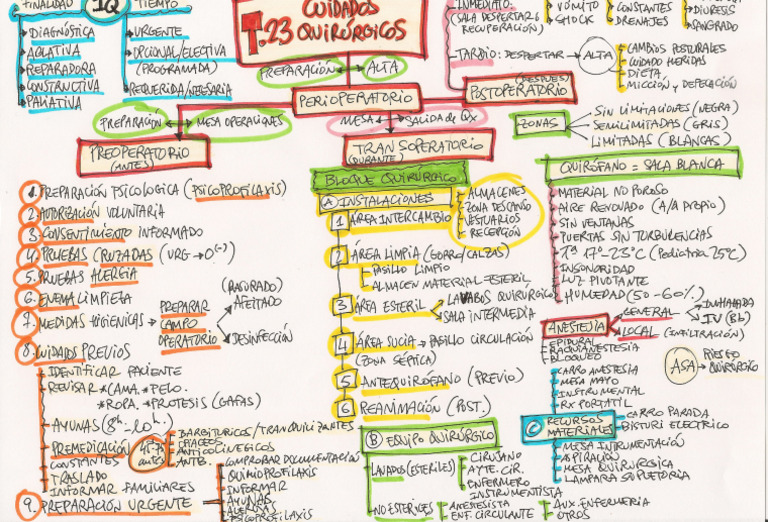 FINALIDAD
IQ
TIEMPO
DIAGNÓSTICA
ABLATIVA
REPARADORA
CONSTRUCTIVA
PALIATIVA
URGENTE
OPCIONAL/ELECTIVA
(PROGRAMADA)
REQUERIDA/NECESARIA
CUIDADOS
T.23 QUIRÚRGICOS
PREPARACIÓN
ALTA
PERIOPERATORIO
INMEDIATO:
(SALA DESPERTAR O
RECUPERACIÓN)
VÓMITO
SHOCK
CONSTANTES
DRENAJES
DIURESIS
SANGRADO
TARDIO: DESPERTAR → ALTA
CAMBIOS POSTURALES
CUIDADO HERIDAS
DIETA
MICCIÓN Y DEFECACIÓN
(DESPUES)
POSTOPERATORIO
PREPARACIÓN
MESA OPERACIONES
MESA
SALIDA de Qx
PREOPERATORIO
(ANTES)
TRANSOPERATORIO
(DURANTE)
ZONAS
SIN LIMITACIONES (NEGRA)
SEMILIMITADAS (GRIS)
LIMITADAS (BLANCAS)
1. PREPARACIÓN PSICOLOGICA (PSICOPROFILAXIS)
2. AUTORIZACIÓN VOLUNTARIA
3. CONSENTIMIENTO INFORMADO
4. PRUEBAS CRUZADAS (URG → O(-))
5. PRUEBAS ALERGIA
6. ENEMA LIMPIEZA
7. MEDIDAS HIGIENICAS → PREPARAR
CAMPO
OPERATORIO
(RASURADO)
AFEITADO
DESINFECCIÓN
8. CUIDADOS PREVIOS
IDENTIFICAR PACIENTE
REVISAR *CAMA. *PELO.
*ROPA. *PROTESIS (GAFAS)
AYUNAS (8h-10h.)
PREMEDICACIÓN
45-75'
antes
BARBITURICOS/TRANQUILIZANTES
OPIACEOS
ANTICOLINEGICOS
ANTB.
CONSTANTES
TRASLADO
INFORMAR FAMILIARES
9. PREPARACIÓN URGENTE
COMPROBAR DOCUMENTACIÓN
QUIMIOPROFILAXIS
INFORMAR
AYUNAS
ALERGIAS
PSICOPROFILAXIS
BLOQUE QUIRÚRGICO
A INSTALACIONES
ALMACENES
ZONA DESCANSO
VESTUARIOS
RECEPCIÓN
1 ÁREA INTERCAMBIO
2 ÁREA LIMPIA (GORRO/CALZAS)
PASILLO LIMPIO
ALMACEN MATERIAL ESTERIL
3 ÁREA ESTERIL
LAVABOS QUIRÚRGICO
SALA INTERMEDIA
4 ÁREA SUCIA → PASILLO CIRCULACIÓN
(ZONA SÉPTICA)
5 ANTEQUIRÓFANO (PREVIO)
6 REANIMACIÓN (POST.)
B EQUIPO QUIRÚRGICO
LAVADOS (ESTERILES)
CIRUJANO
AYTE. CIR.
ENFERMERO
INSTRUMENTISTA
NO ESTERILES
ANESTESISTA
ENF. CIRCULANTE
AUX. ENFERMERIA
OTROS
QUIRÓFANO = SALA BLANCA
MATERIAL NO POROSO
AIRE RENOVADO (A/A propio)
SIN VENTANAS
PUERTAS SIN TURBULENCIAS
Tª 17º-23ºC (Pediatria 25ºC)
INSONORIDAD
LUZ PIVOTANTE
HUMEDAD (50-60%)
ANESTESIA
GENERAL
INHALADA
IV (BB)
LOCAL (INFILTRACIÓN)
EPIDURAL
RAQUIANESTESIA
BLOQUEO
ASA
RIESGO
QUIRÚRGICO
CARRO ANESTESIA
MESA MAYO
INSTRUMENTAL
RX PORTATIL
C RECURSOS
MATERIALES
CARRO PARADA
BISTURI ELECTRICO
MESA INTRUMENTACIÓN
ASPIRACIÓN
MESA QUIRÚRGICA
LAMPARA SUPLETORIA